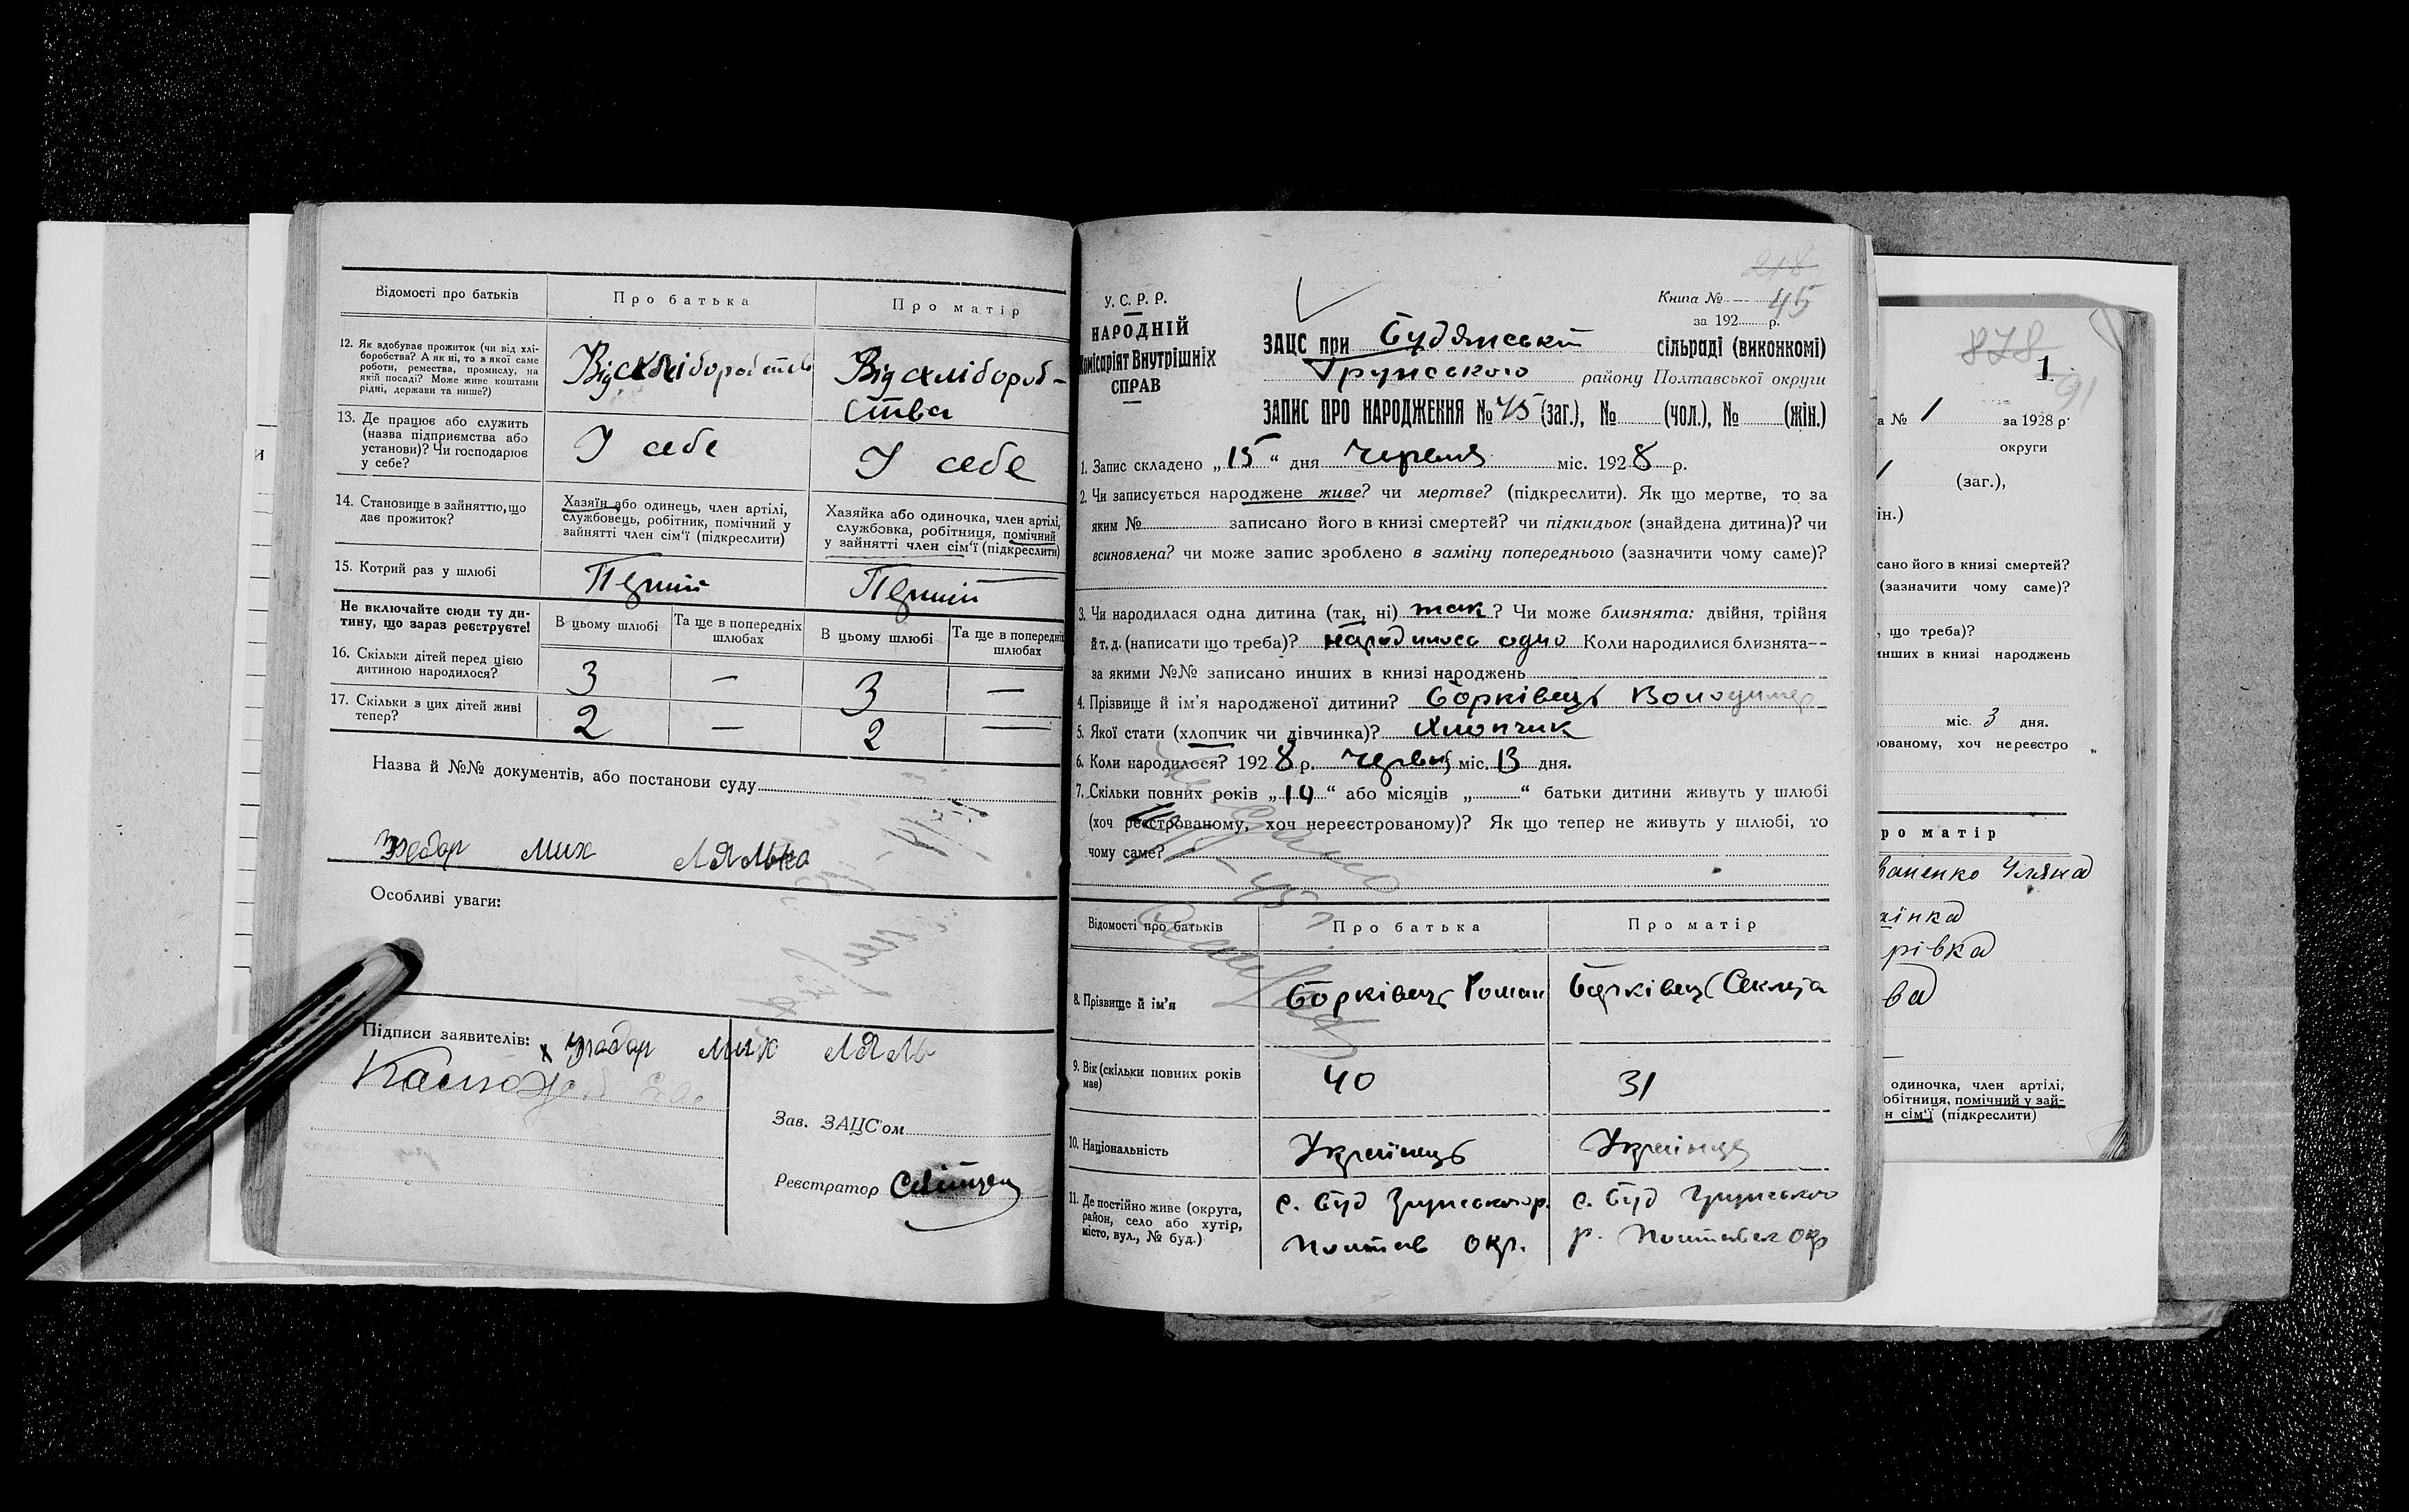 Відомості про батьків
Про батька
Про матір
12. Як здобуває прожиток (чи від хлі-
боробства? А як ні, то з якої саме
роботи, ремества, промислу, на
якій посаді? Може живе коштами
рідні, держави та инше?)
Від схліборобств
Від схлібороб-
ства
13. Де працює або служить
(назва підприємства або
установи)? Чи господарює
у себе?
У себе
У себе
14. Становище в зайняттю, що
дає прожиток?
Хазяїн або одинець, член артілі,
службовець, робітник, помічний у
зайнятті член сім'ї (підкреслити)
Хазяйка або одиночка, член артілі,
службовка, робітниця, помічний
у зайнятті член сім'ї (підкреслити)
15. Котрий раз у шлюбі
Перший
Перший
Не включайте сюди ту ди-
тину, що зараз реєструєте!
В цьому шлюбі
Та ще в попередніх
шлюбах
В цьому шлюбі
Та ще в попередніх
шлюбах
16. Скільки дітей перед цією
дитиною народилося?
3 — 3 —
17. Скільки з цих дітей живі
тепер?
2 — 2 —
Назва й №№ документів, або постанови суду
мих лялька
Особливі уваги:
Підписи заявителів:
мих ляль
Зав. ЗАЦС'ом
Реєстратор
218
У.С.Р.Р.
НАРОДНІЙ
Комісаріят Внутрішніх
СПРАВ
Книга № 45
за 192 р.
ЗАЦС при Будянській сільраді (виконкомі)
Грунського району Полтавської округи
ЗАПИС ПРО НАРОДЖЕННЯ № 45 (заг.), № (чол.), № (жін.)
1. Запис складено „15" дня Червня міс. 1928 р.
2. Чи записується народжене живе? чи мертве? (підкреслити). Як що мертве, то за
яким № записано його в книзі смертей? чи підкидьок (знайдена дитина)? чи
всиновлена? чи може запис зроблено в заміну попереднього (зазначити чому саме)?
3. Чи народилася одна дитина (так, ні) так? Чи може близнята: двійня, трійня
й т. д. (написати що треба)? народилось одно Коли народилися близнята—
за якими №№ записано инших в книзі народжень
4. Прізвище й ім'я народженої дитини? Борківець Володимер
5. Якої стати (хлопчик чи дівчинка)? Хлопчик
6. Коли народилося? 1928 р. Червня міс. 13 дня.
7. Скільки повних років „10" або місяців „ " батьки дитини живуть у шлюбі
(хоч реєстрованому, хоч нереєстрованому)? Як що тепер не живуть у шлюбі, то
чому саме?
Відомості про батьків
Про батька
Про матір
8. Прізвище й ім'я
Борківець Роман
Борківець Секлета
9. Вік (скільки повних років
має)
40
31
10. Національність
Українець
Українця
11. Де постійно живе (округа,
район, село або хутір,
місто, вул., № буд.)
с. Буд Грунського р.
Полтав Окр.
с. Буд Грунського
р. Полтавск Окр
878
1
91
а № 1 за 1928 р.
округи
(заг.),
ін.)
сано його в книзі смертей?
(зазначити чому саме)?
, що треба)?
инших в книзі народжень
міс. 3 дня.
ованому, хоч нереєстро
ро матір
ваненко Уляна
аїнка
рівка
ва
одиночка, член артілі,
обітниця, помічний у зай-
н сім'ї (підкреслити)